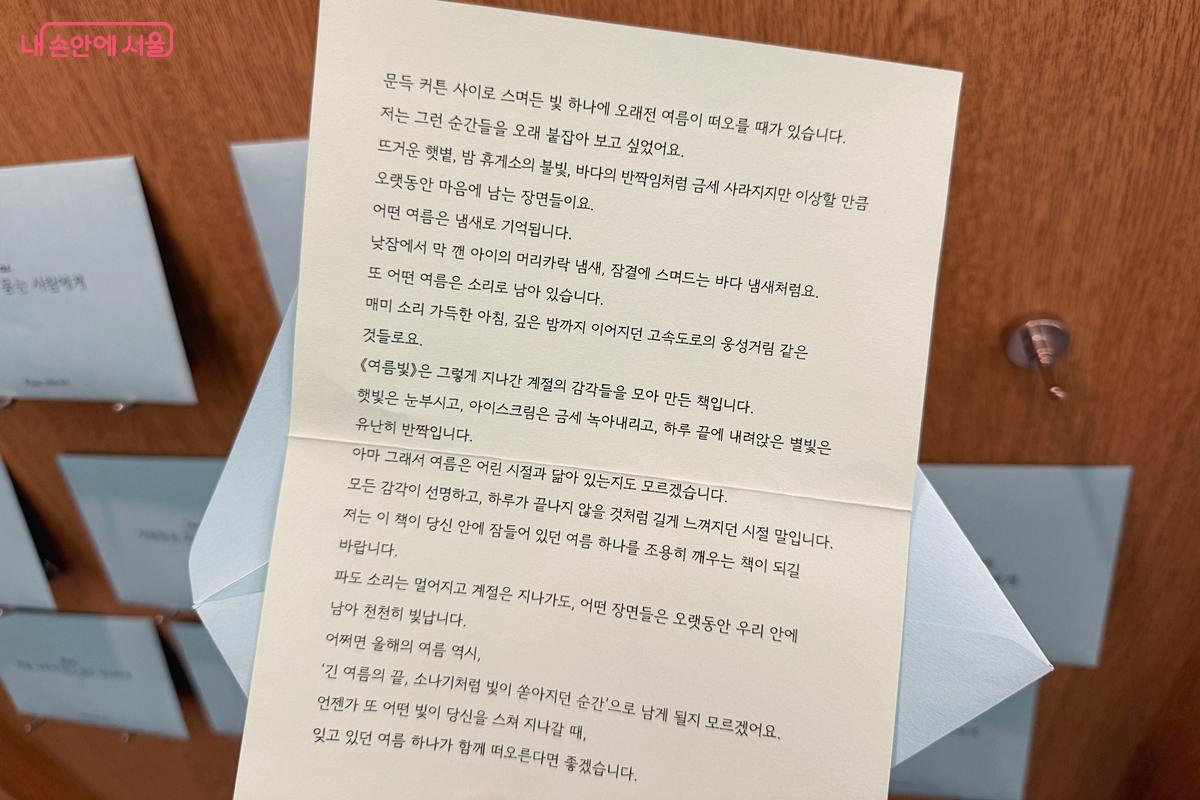 내 손안에 서울
문득 커튼 사이로 스며든 빛 하나에 오래전 여름이 떠오를 때가 있습니다.
저는 그런 순간들을 오래 붙잡아 보고 싶었어요.
뜨거운 햇볕, 밤 휴게소의 불빛, 바다의 반짝임처럼 금세 사라지지만 이상할 만큼
오랫동안 마음에 남는 장면들이요.
어떤 여름은 냄새로 기억됩니다.
낮잠에서 막 깬 아이의 머리카락 냄새, 잠결에 스며드는 바다 냄새처럼요.
또 어떤 여름은 소리로 남아 있습니다.
매미 소리 가득한 아침, 깊은 밤까지 이어지던 고속도로의 웅성거림 같은
것들로요.
《여름빛》은 그렇게 지나간 계절의 감각들을 모아 만든 책입니다.
햇빛은 눈부시고, 아이스크림은 금세 녹아내리고, 하루 끝에 내려앉은 별빛은
유난히 반짝입니다.
아마 그래서 여름은 어린 시절과 닮아 있는지도 모르겠습니다.
모든 감각이 선명하고, 하루가 끝나지 않을 것처럼 길게 느껴지던 시절 말입니다.
저는 이 책이 당신 안에 잠들어 있던 여름 하나를 조용히 깨우는 책이 되길
바랍니다.
파도 소리는 멀어지고 계절은 지나가도, 어떤 장면들은 오랫동안 우리 안에
남아 천천히 빛납니다.
어쩌면 올해의 여름 역시,
'긴 여름의 끝, 소나기처럼 빛이 쏟아지던 순간'으로 남게 될지 모르겠어요.
언젠가 또 어떤 빛이 당신을 스쳐 지나갈 때,
잊고 있던 여름 하나가 함께 떠오른다면 좋겠습니다.
묻는 사람에게